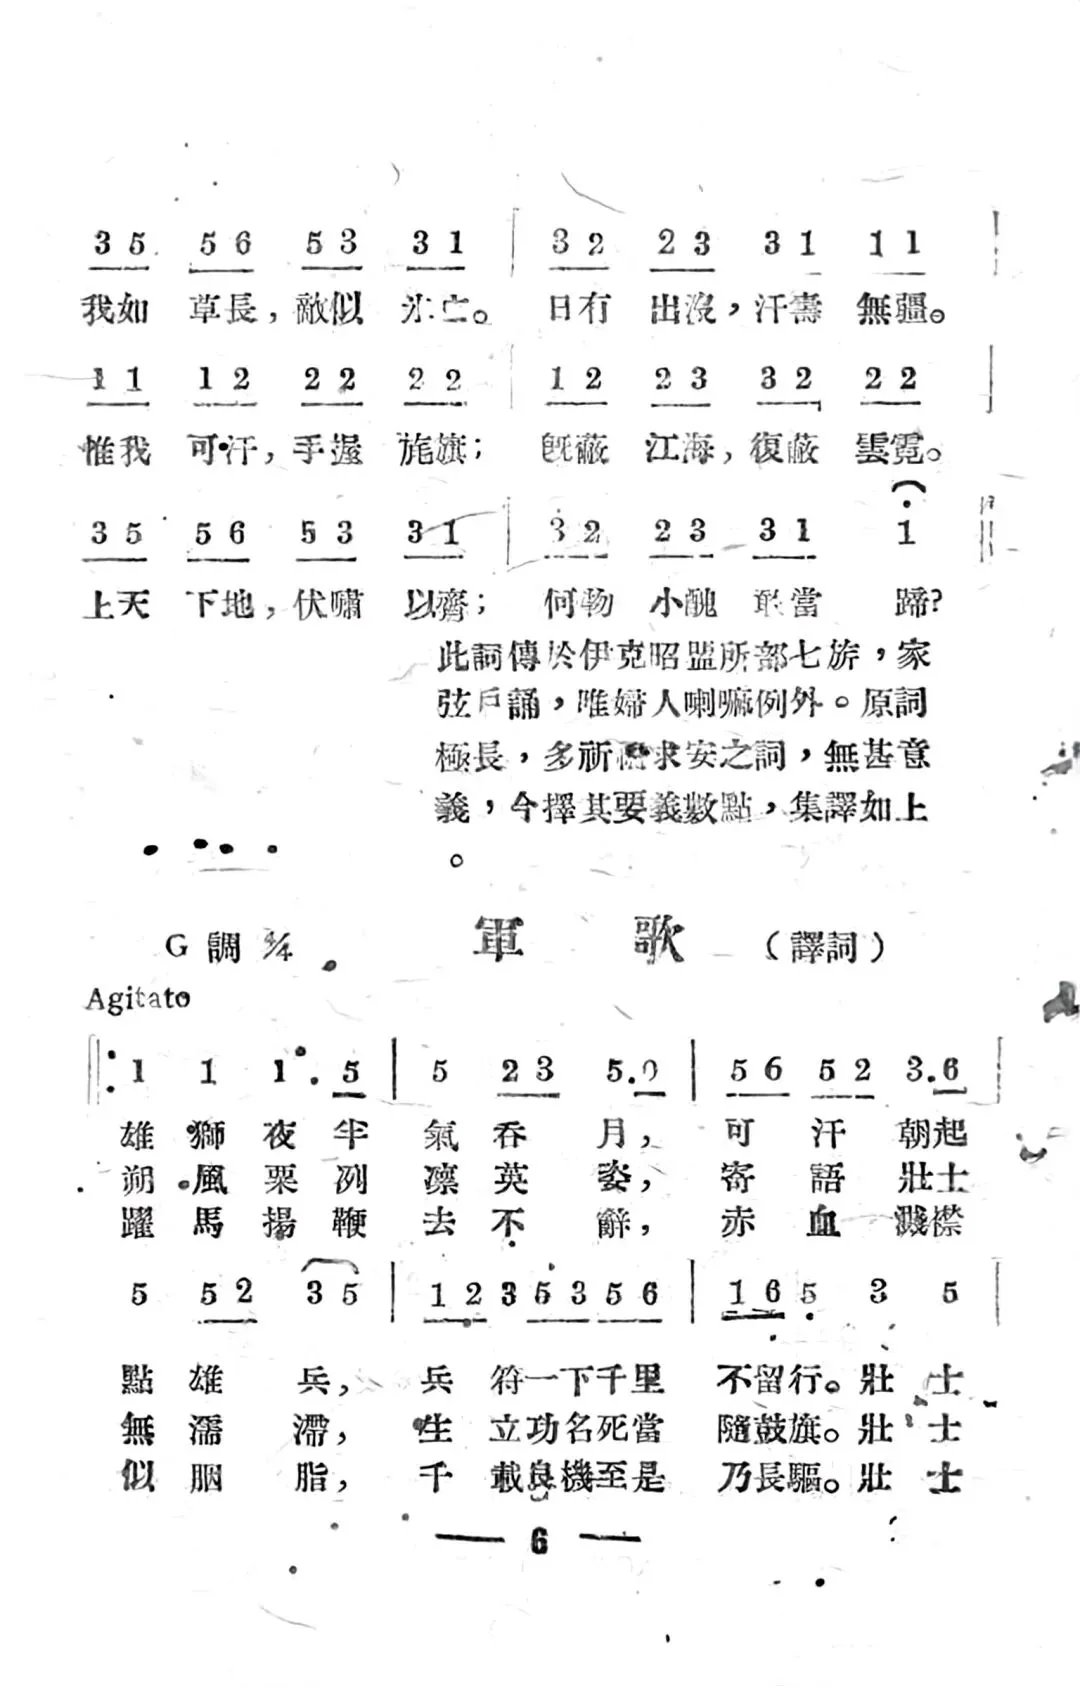 35 56 53 31 | 32 23 31 11 |
我如 草長，敵似 氷亡。 日有 出沒，汗壽 無疆。
11 12 22 22 | 12 23 32 22 |
惟我 可汗，手握 旄旗； 既蔽 江海，復蔽 雲霓。
35 56 53 31 | 32 23 31 1 ||
上天 下地，伏嘯 以齊； 何物 小醜 敢當 蹄？
此詞傳於伊克昭盟所部七旂，家
弦戶誦，唯婦人喇嘛例外。原詞
極長，多祈 求安之詞，無甚意
義，今擇其要義數點，集譯如上
。
G調 2/4 軍 歌 （譯詞）
Agitato
||: 1 1 1. 5 | 5 23 5.0 | 56 52 3.6 |
雄 獅 夜 半 氣 吞 月， 可 汗 朝起
朔 風 栗 冽 凛 英 姿， 寄 語 壯士
躍 馬 揚 鞭 去 不 辭， 赤 血 濺襟
5 52 35 | 12 35 35 6 | 16 5 3 5 |
點 雄 兵， 兵 符一下千里 不留行。壯 士
無 濡 滯， 生 立功名死當 隨鼓旗。壯 士
似 胭 脂， 千 載良機至是 乃長驅。壯 士
— 6 —